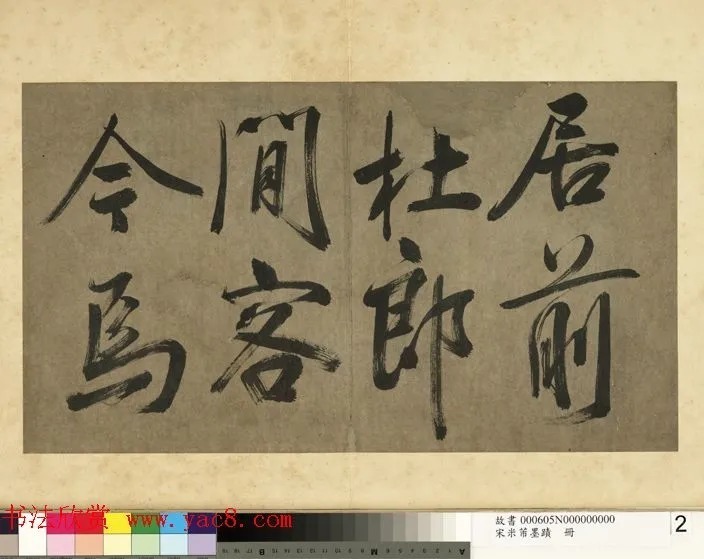 居前
杜郎
閒客
今焉
书法欣赏 www.yac8.com
故書 000605N000000000
宋米芾墨蹟 冊
2